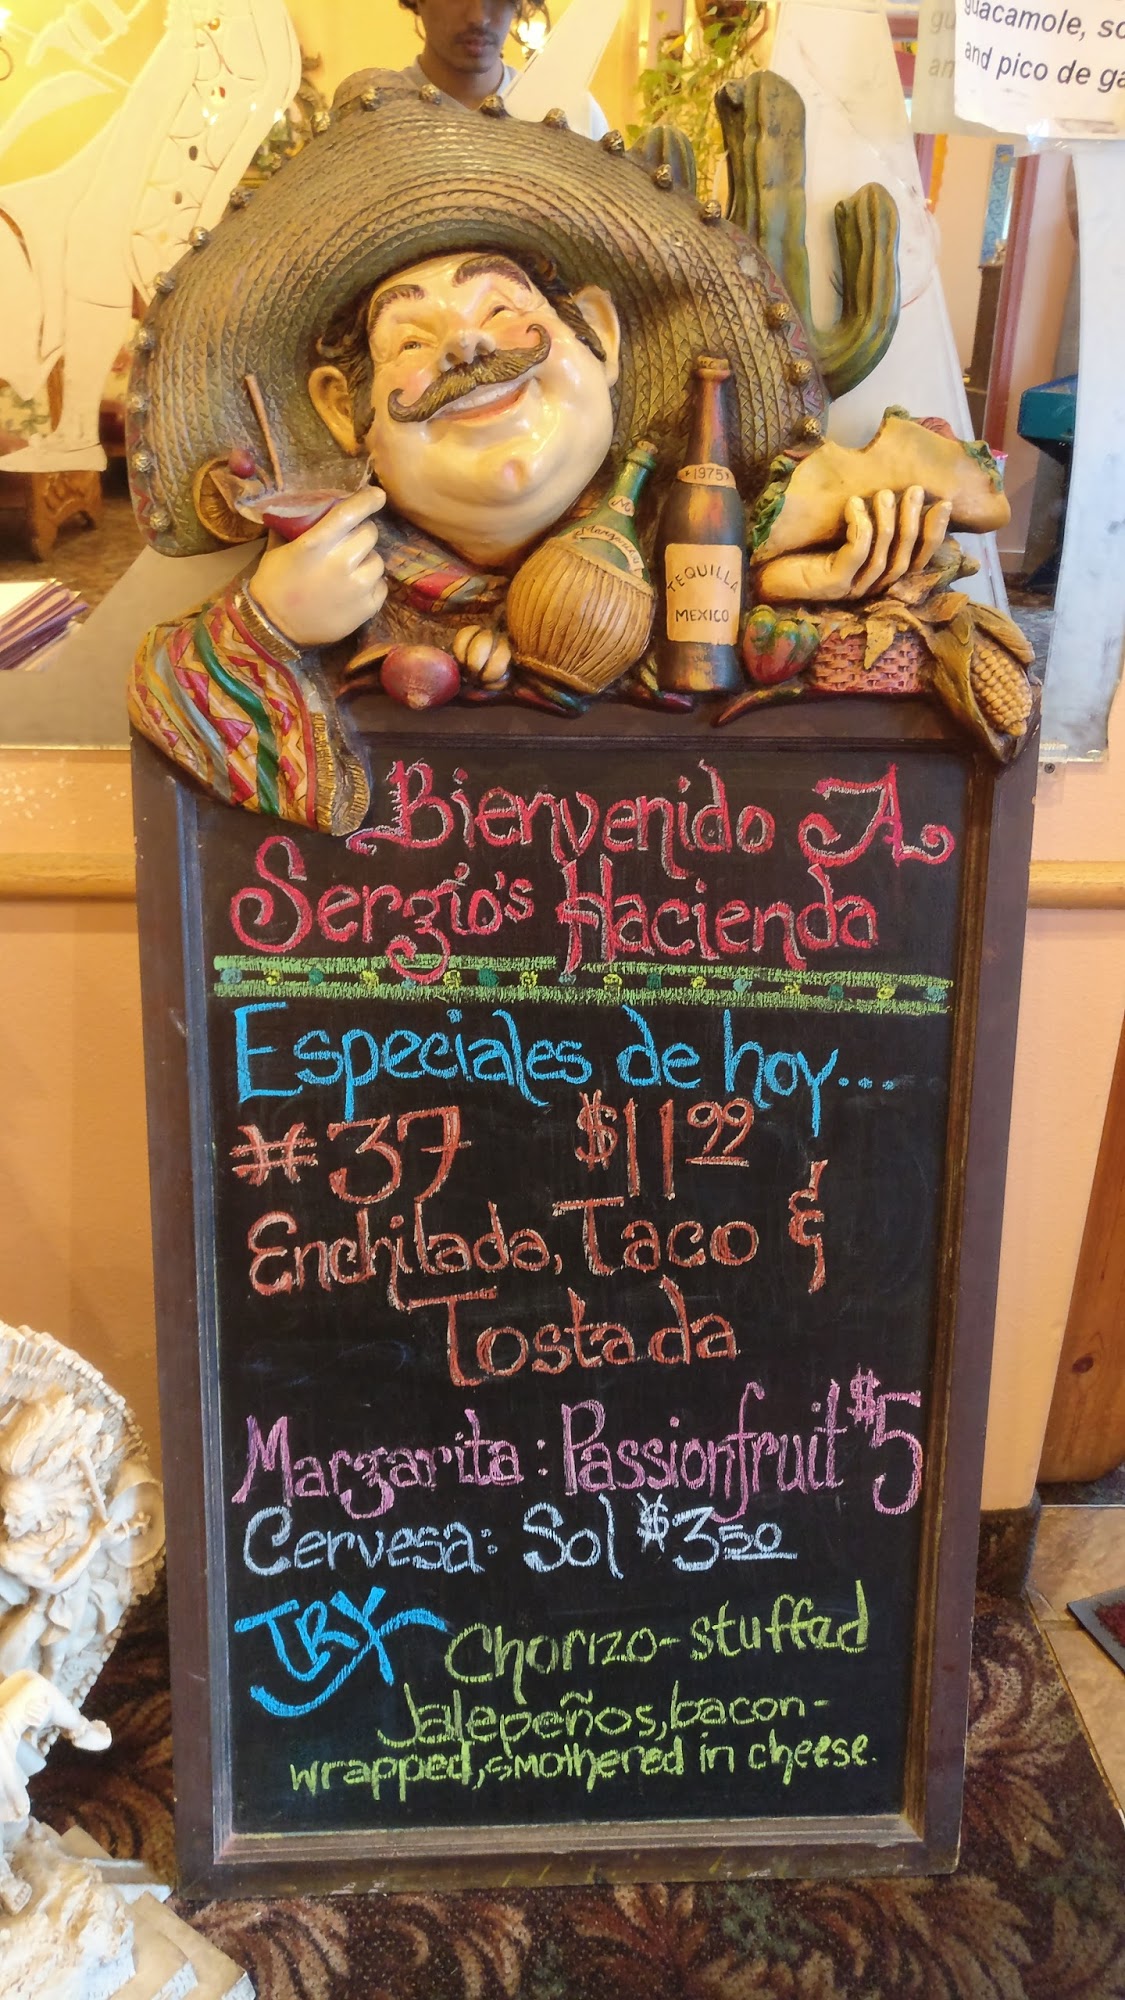 guacamole, so
and pico de ga
1975
Margarita
TEQUILLA
MEXICO
Bienvenido A
Sergio's Hacienda
Especiales de hoy...
#37 $11.99
Enchilada, Taco &
Tostada
Margarita: Passionfruit $5
Cervesa: Sol $3.50
TRY Chorizo-stuffed
Jalepeños, bacon-
wrapped, smothered in cheese.